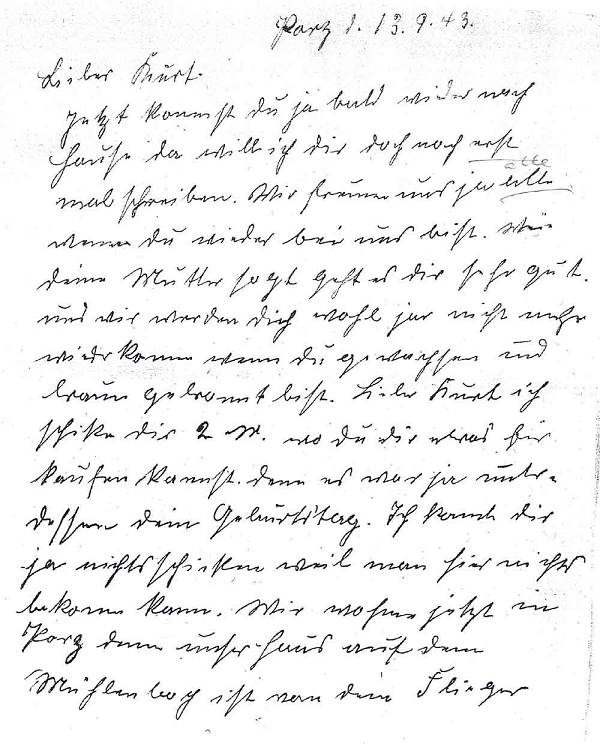 Porz d. 13.9.43.
Lieber Kurt.
jetzt kommst du ja bald wieder nach
Hause da will ich dir doch noch erst
alle
mal schreiben. Wir freuen uns ja alle
wenn du wieder bei uns bist. Wie
deine Mutter sagt geht es dir sehr gut.
und wir werden dich wohl jar nicht mehr
wieder kenne wenn du gewachsen und
braun gebrannt bist. Lieber Kurt ich
schike dir 2 M. wo du dir etwas für
kaufen kannst. denn es war ja unter-
dessen dein Geburtstag. Ich kann dir
ja nichts schicken weil man hier nichts
bekomme kann. Wir wohne jetzt in
Porz denn unser Haus auf dem
Mühlenbach ist von dem Flieger